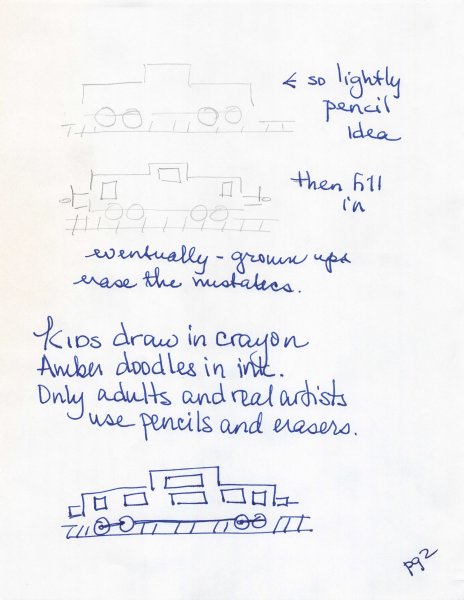 ← so lightly
pencil
idea
then fill
in
eventually - grown ups
erase the mistakes.
Kids draw in crayon
Amber doodles in ink.
Only adults and real artists
use pencils and erasers.
pg 2